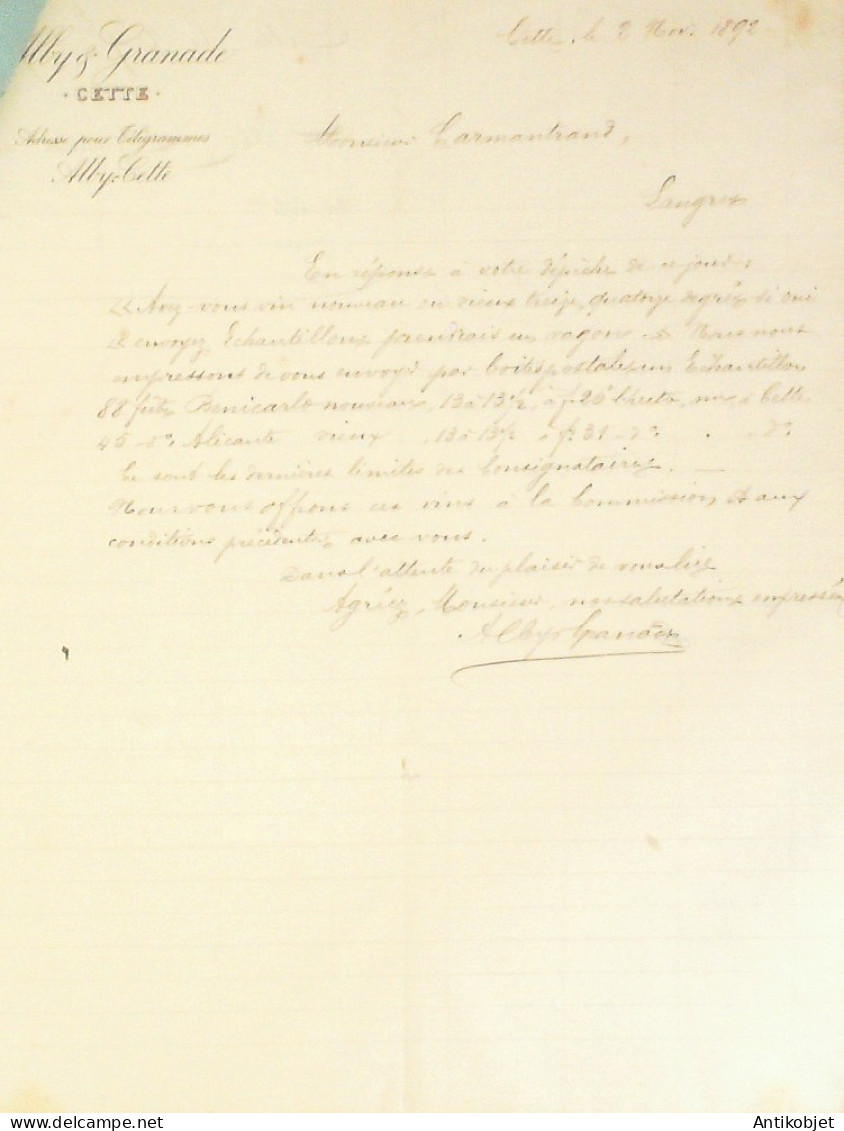 Alby & Granade
· CETTE ·
Adresse pour Télégrammes
Alby-Cette
Cette, le 2 Nov. 1892
Monsieur Carmantrand,
Langres
En réponse à votre dépêche de ce jour :
« Avez-vous vin nouveau ou vieux treize, quatorze degrés si oui
« envoyez Echantillons prendrais un wagon » Nous nous
empressons de vous envoyer par boites postales un Echantillon
88 futs Benicarlo nouveau, 13 à 13½, à f. 25 l'hecto, nu à Cette
45 - do Alicante vieux , 13 à 13½ à f. 31 - do . - do
Ce sont les dernières limites des Consignataires. —
Nous vous offrons ces vins à la Commission & aux
conditions précédentes avec vous.
Dans l'attente du plaisir de vous lire
Agréez, Monsieur, nos salutations empressées
Alby Granade
Antikobjet